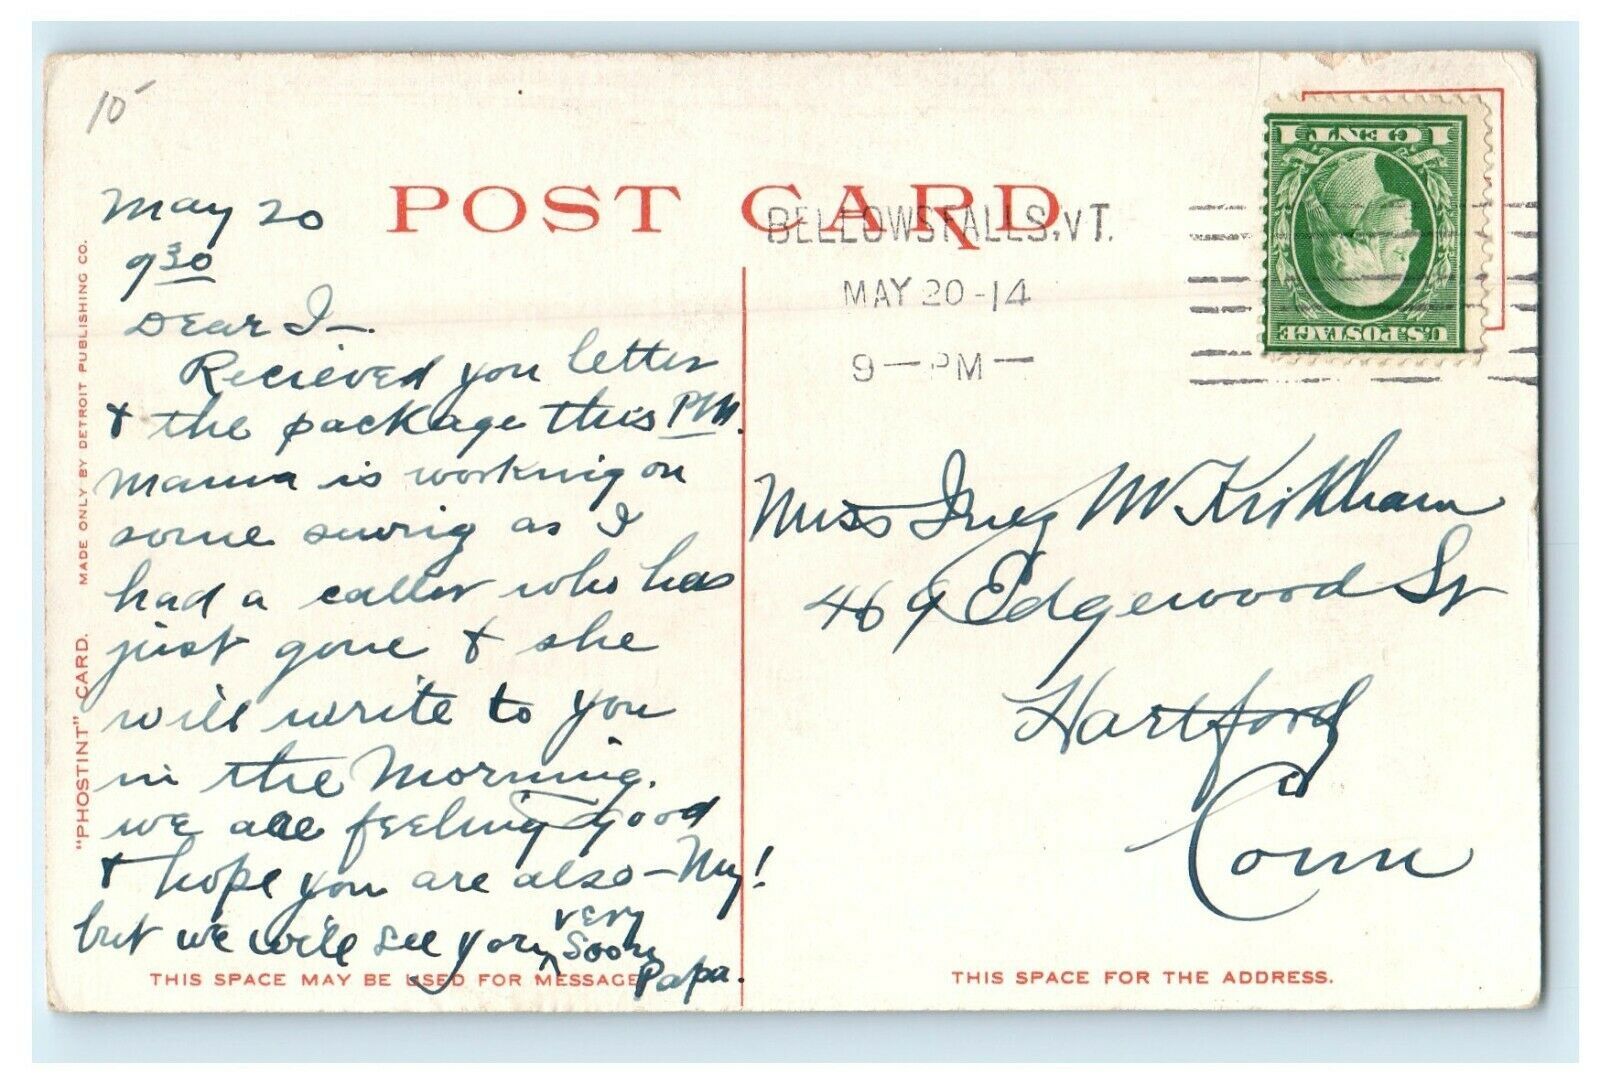 10-
POST CARD
May 20
9 30
Dear I—.
Recieved you letter
& the package this PM.
Mama is working on
some sewing as I
had a caller who has
just gone & she
will write to you
in the Morning.
we are feeling good
& hope you are also — My!
but we will see you very soon
Papa.
THIS SPACE MAY BE USED FOR MESSAGE
"PHOSTINT" CARD. MADE ONLY BY DETROIT PUBLISHING CO.
BELLOWS FALLS, VT.
MAY 20 -14
9 — PM —
1 CENT 1
U.S. POSTAGE
Miss Inez M Kirkham
469 Edgewood St
Hartford
Conn
THIS SPACE FOR THE ADDRESS.